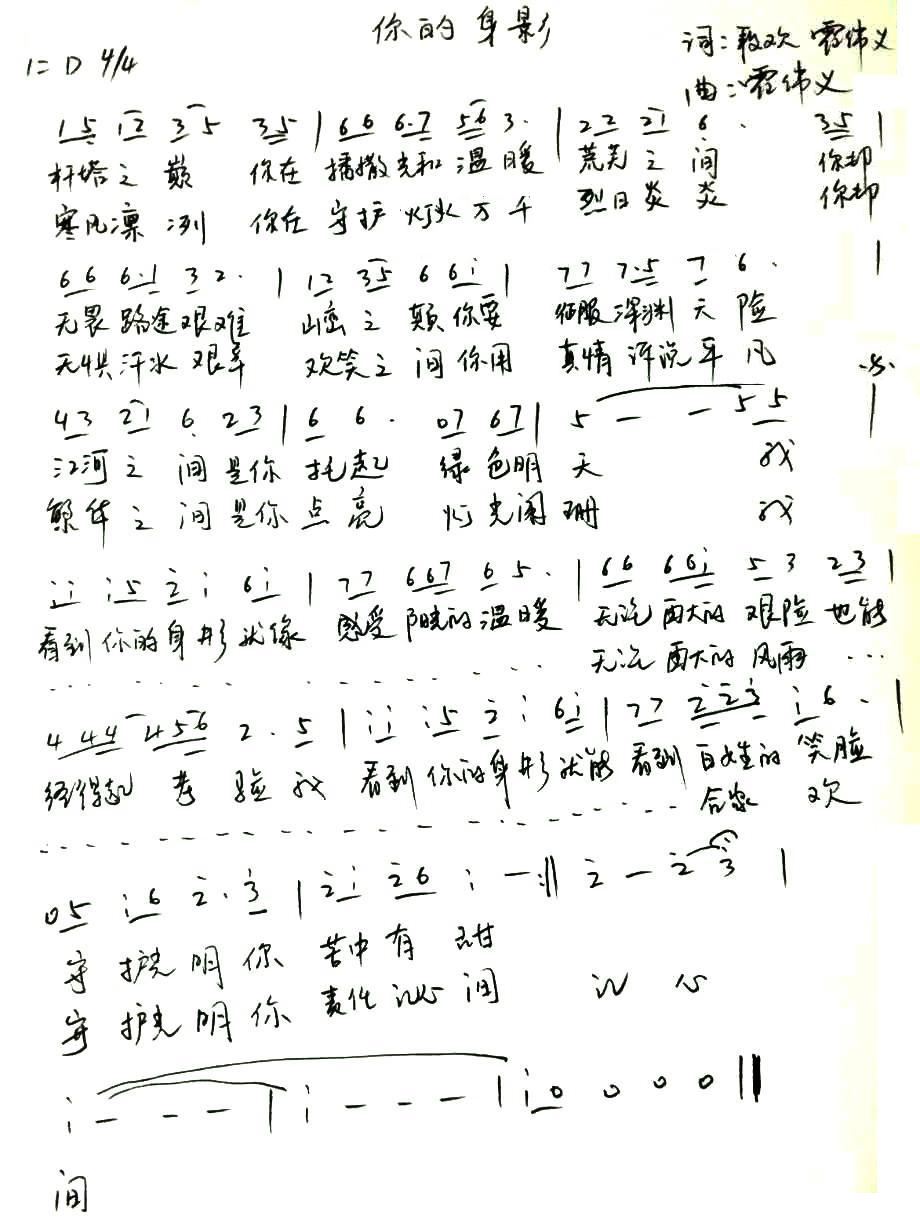 你的身影
1=D 4/4
词：段欢 霍伟义
曲：霍伟义
15 12 35 35 | 66 6·7 56 3· | 22 21 6· 35 |
杆塔之巅 你在播撒光和温暖 荒芜之间 你却
寒风凛冽 你在守护灯火万千 烈日炎炎 你却
66 6·1 3 2· | 12 35 6 6i | 77 7·5 7 6· |
无畏路途艰难 山峦之颠你要 征服深渊天险
无惧汗水艰辛 欢笑之间你用 真情诉说平凡
43 21 6 23 | 6 6· 07 67 | 5 — — 5 5 |
江河之间是你托起 绿色明天 我
繁华之间是你点亮 灯光阑珊 我
ii i5 2 i 6i | 77 667 6 5· | 66 66i 5 3 23 |
看到你的身影就像 感受阳光的温暖 无论再大的艰险也能
无论再大的风雨 ···
4 44 456 2· 5 | ii i5 2 i 6i | 77 223 i 6· |
经得起考验我 看到你的身影就能看到百姓的笑脸
合家欢
05 i6 2· 3 | 2i 26 i — :|| 2 — 2 3 |
守护光明你苦中有甜
守护光明你责任心间 心
i — — — | i — — — | i0 0 0 0 ||
间